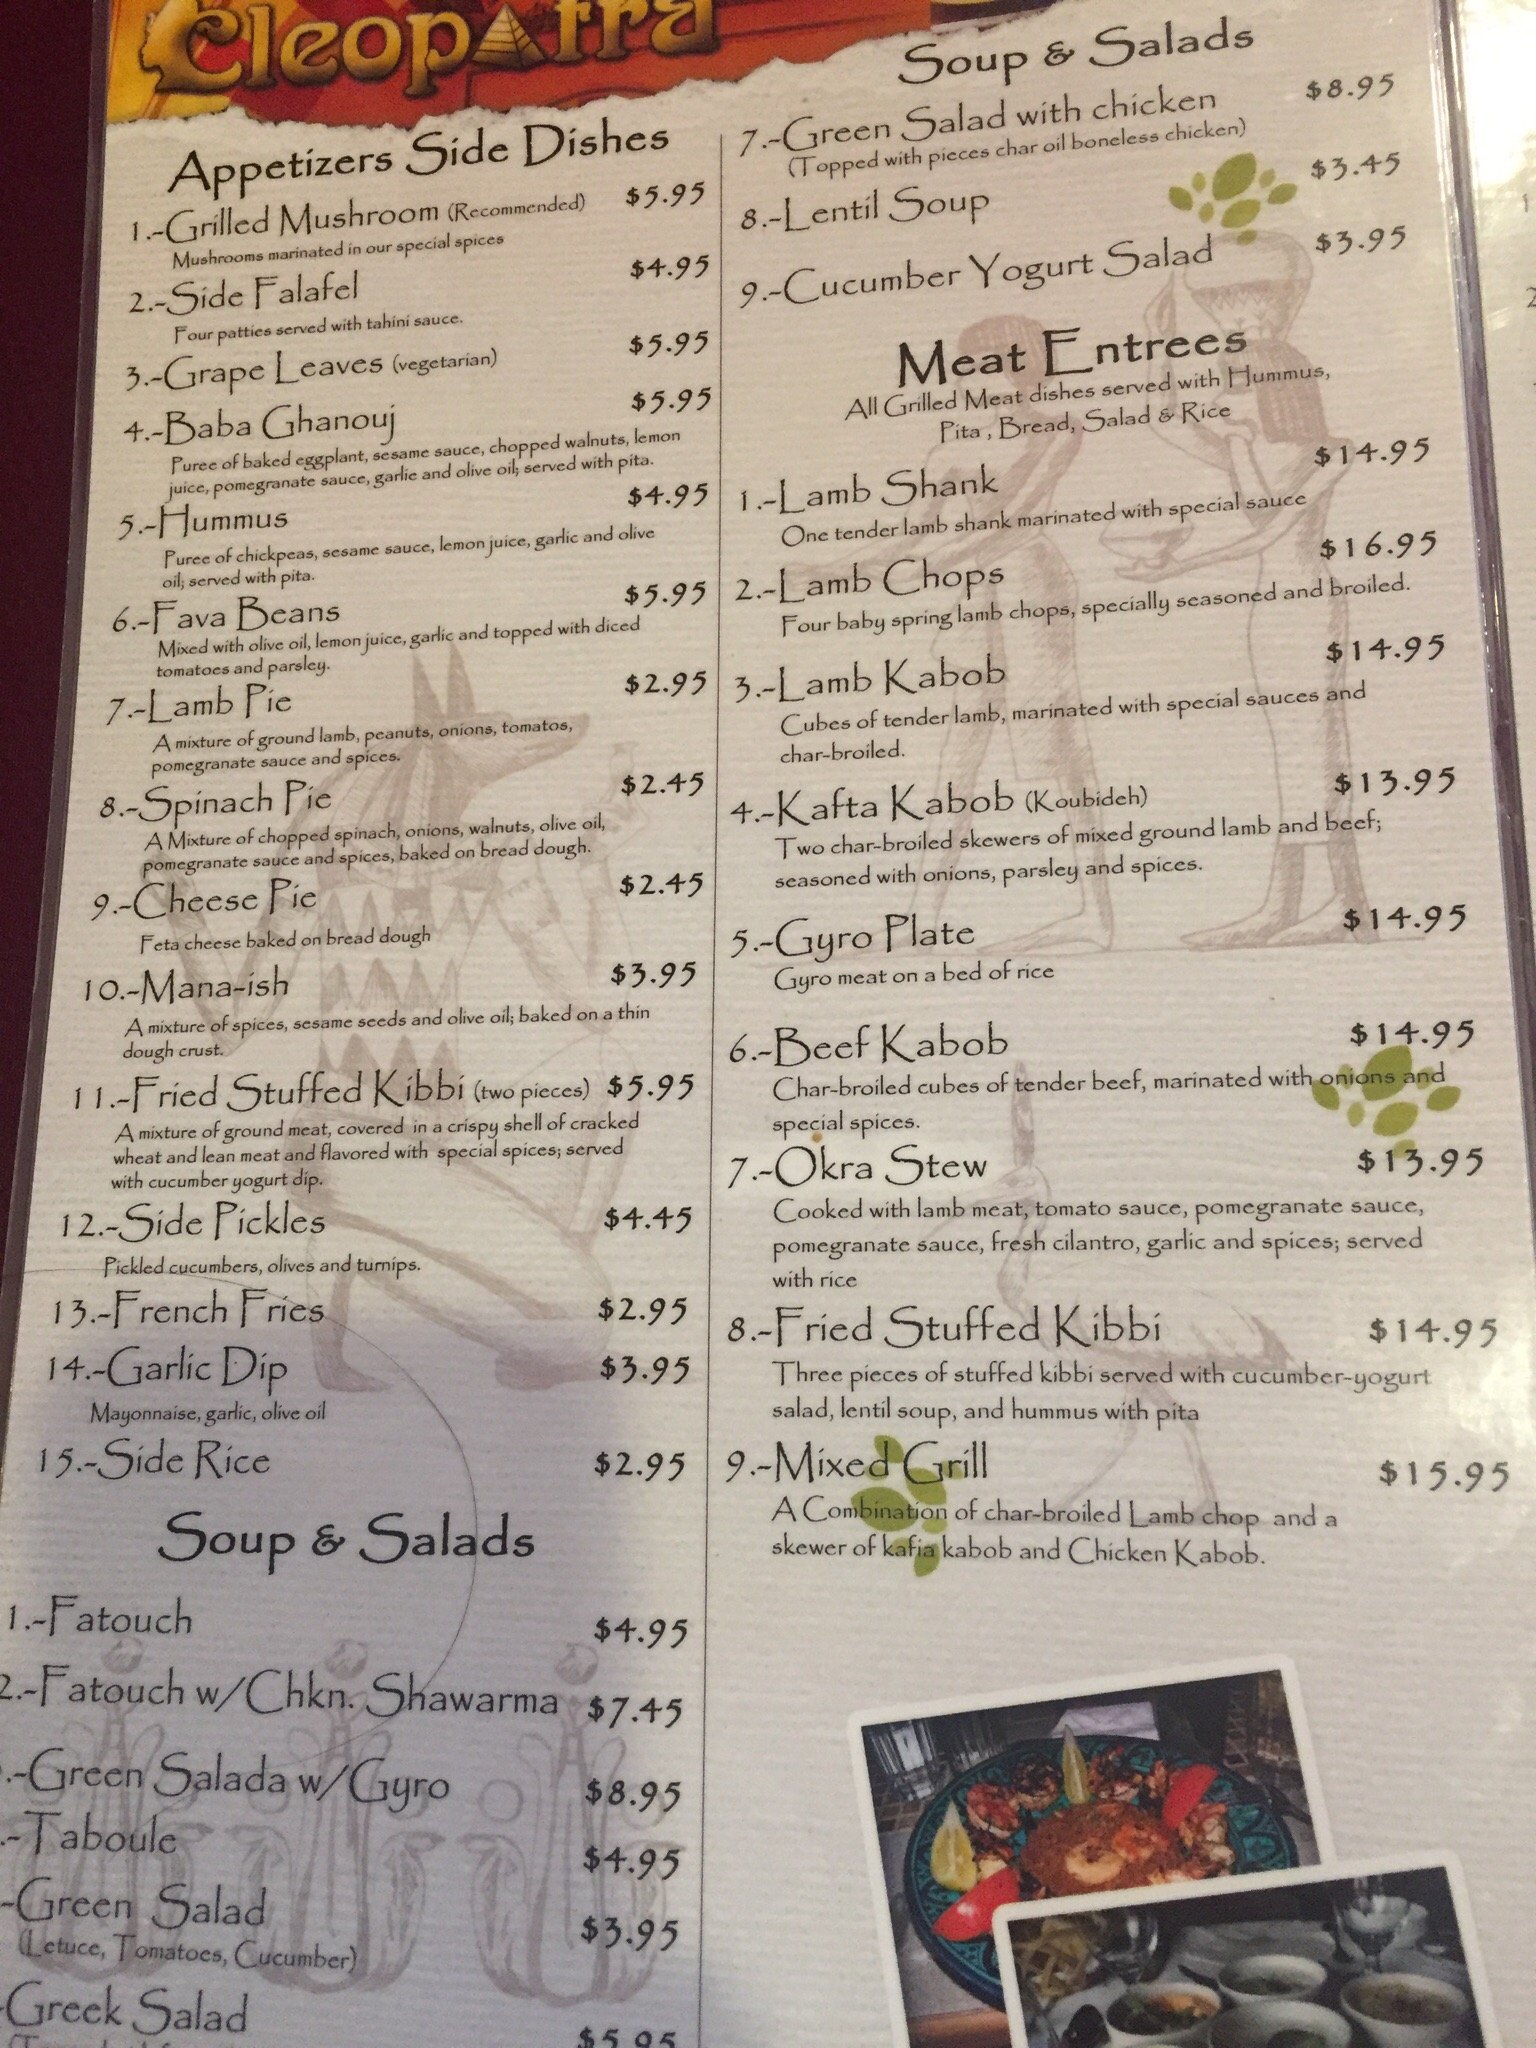 Cleopatra
Appetizers Side Dishes
1.-Grilled Mushroom (Recommended) $5.95
Mushrooms marinated in our special spices
2.-Side Falafel $4.95
Four patties served with tahini sauce.
3.-Grape Leaves (vegetarian) $5.95
4.-Baba Ghanouj $5.95
Puree of baked eggplant, sesame sauce, chopped walnuts, lemon
juice, pomegranate sauce, garlie and olive oil; served with pita.
5.-Hummus $4.95
Puree of chickpeas, sesame sauce, lemon juice, garlic and olive
oil; served with pita.
6.-Fava Beans $5.95
Mixed with olive oil, lemon juice, garlic and topped with diced
tomatoes and parsley.
7.-Lamb Pie $2.95
A mixture of ground lamb, peanuts, onions, tomatos,
pomegranate sauce and spices.
8.-Spinach Pie $2.45
A Mixture of chopped spinach, onions, walnuts, olive oil,
pomegranate sauce and spices, baked on bread dough.
9.-Cheese Pie $2.45
Feta cheese baked on bread dough
10.-Mana-ish $3.95
A mixture of spices, sesame seeds and olive oil; baked on a thin
dough crust.
11.-Fried Stuffed Kibbi (two pieces) $5.95
A mixture of ground meat, covered in a crispy shell of cracked
wheat and lean meat and flavored with special spices; served
with cucumber yogurt dip.
12.-Side Pickles $4.45
Pickled cucumbers, olives and turnips.
13.-French Fries $2.95
14.-Garlic Dip $3.95
Mayonnaise, garlic, olive oil
15.-Side Rice $2.95
Soup & Salads
1.-Fatouch $4.95
2.-Fatouch w/Chkn. Shawarma $7.45
.-Green Salada w/Gyro $8.95
.-Taboule $4.95
-Green Salad $3.95
(Letuce, Tomatoes, Cucumber)
-Greek Salad $5.95
Soup & Salads
7.-Green Salad with chicken $8.95
(Topped with pieces char oil boneless chicken)
8.-Lentil Soup $3.45
9.-Cucumber Yogurt Salad $3.95
Meat Entrees
All Grilled Meat dishes served with Hummus,
Pita , Bread, Salad & Rice
1.-Lamb Shank $14.95
One tender lamb shank marinated with special sauce
2.-Lamb Chops $16.95
Four baby spring lamb chops, specially seasoned and broiled.
3.-Lamb Kabob $14.95
Cubes of tender lamb, marinated with special sauces and
char-broiled.
4.-Kafta Kabob (Koubideh) $13.95
Two char-broiled skewers of mixed ground lamb and beef;
seasoned with onions, parsley and spices.
5.-Gyro Plate $14.95
Gyro meat on a bed of rice
6.-Beef Kabob $14.95
Char-broiled cubes of tender beef, marinated with onions and
special spices.
7.-Okra Stew $13.95
Cooked with lamb meat, tomato sauce, pomegranate sauce,
pomegranate sauce, fresh cilantro, garlic and spices; served
with rice
8.-Fried Stuffed Kibbi $14.95
Three pieces of stuffed kibbi served with cucumber-yogurt
salad, lentil soup, and hummus with pita
9.-Mixed Grill $15.95
A Combination of char-broiled Lamb chop and a
skewer of kafia kabob and Chicken Kabob.